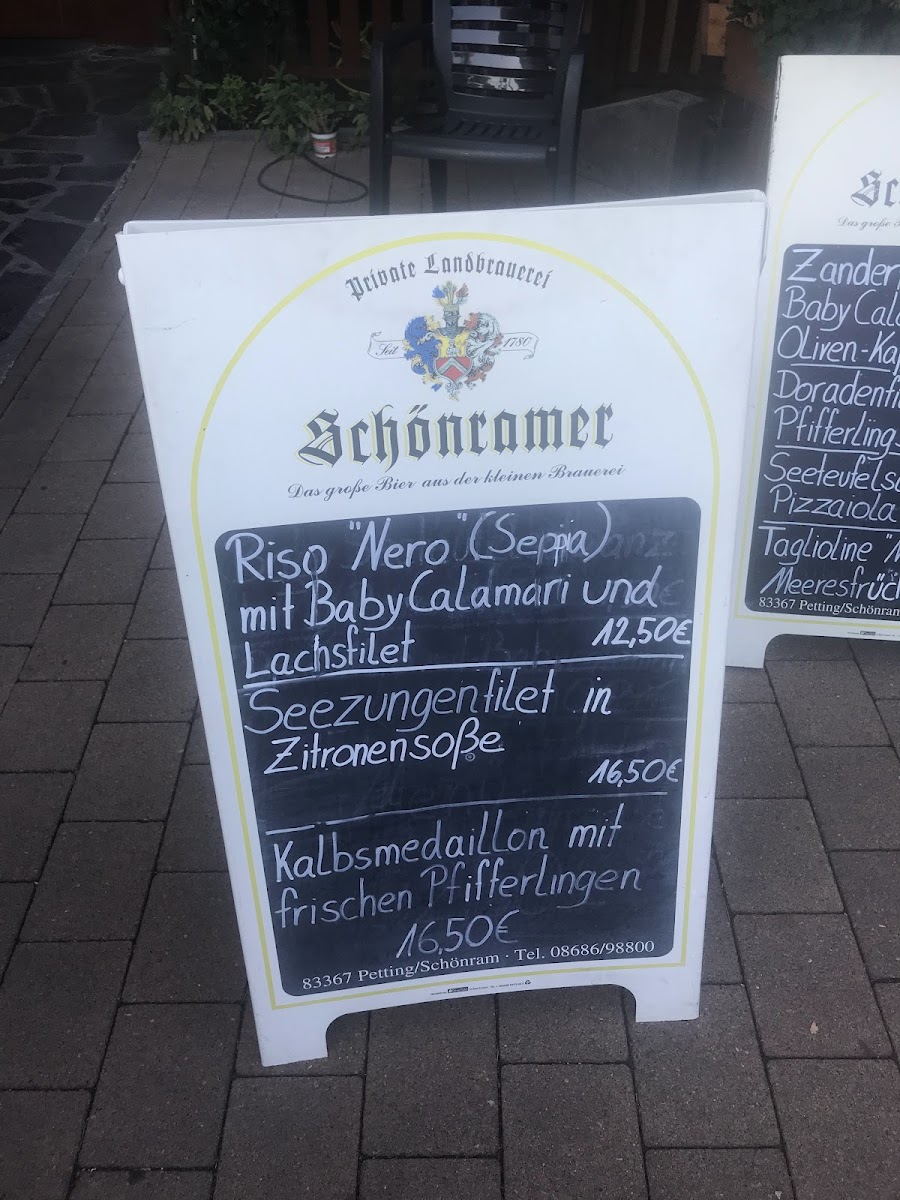 Private Landbrauerei
Seit 1780
Schönramer
Das große Bier aus der kleinen Brauerei
Riso "Nero" (Seppia)
mit Baby Calamari und
Lachsfilet 12,50€
Seezungenfilet in
Zitronensoße
16,50€
Kalbsmedaillon mit
frischen Pfifferlingen
16,50€
83367 Petting/Schönram · Tel. 08686/98800
Sc
Das große
Zander
Baby Cala
Oliven-Kap
Doradenfi
Pfifferlings
Seeteufels
Pizzaiola
Taglioline "N
Meeresfrüch
83367 Petting/Schönram